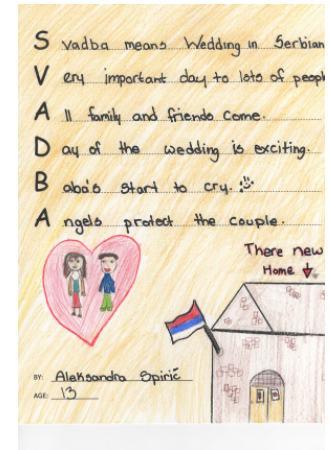 Svadba means Wedding in Serbian
Very important day to lots of peopl
All family and friends come.
Day of the wedding is exciting.
Baba's start to cry.
Angels protect the couple.
There new
Home
BY: Aleksandra Spirić
AGE: 13